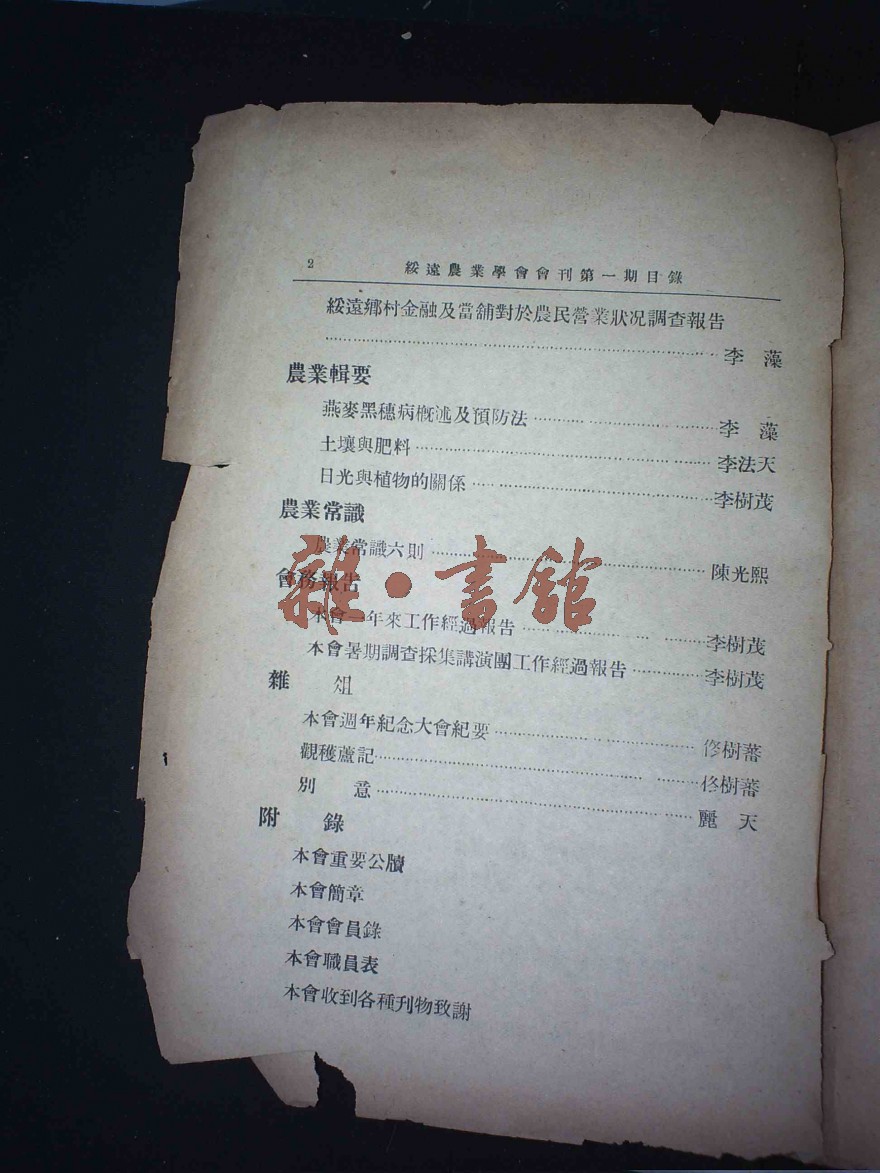 2　綏遠農業學會會刊第一期目錄
綏遠鄉村金融及當舖對於農民營業狀況調查報告
……李　藻
農業輯要
燕麥黑穗病概述及預防法……李　藻
土壤與肥料……李法天
日光與植物的關係……李樹茂
農業常識
農業常識六則……陳光熙
會務報告
本會一年來工作經過報告……李樹茂
本會暑期調查採集講演團工作經過報告……李樹茂
雜　俎
本會週年紀念大會紀要……佟樹蕃
觀穫蘆記……佟樹蕃
別　意……麗　天
附　錄
本會重要公牘
本會簡章
本會會員錄
本會職員表
本會收到各種刊物致謝
雜·書館